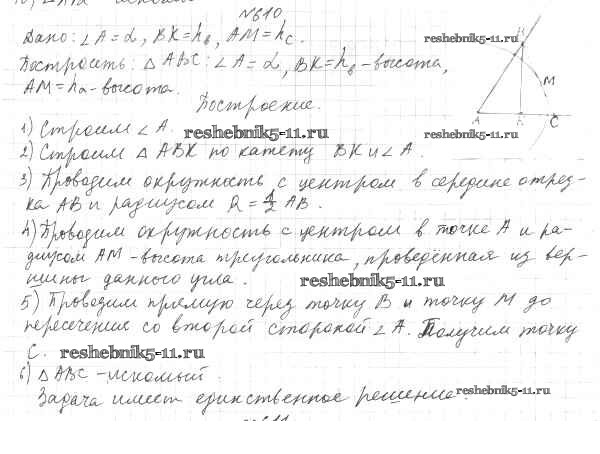 №610
Дано: ∠A = α, BK = h_b, AM = h_c.
Построить: △ABC: ∠A = α, BK = h_b - высота,
AM = h_a - высота.
Построение.
1) Строим ∠A.
2) Строим △ABK по катету BK и ∠A.
3) Проводим окружность с центром в середине отрез-
ка AB и радиусом R = 1/2 AB.
4) Проводим окружность с центром в точке A и ра-
диусом AM - высота треугольника, проведённая из вер-
шины данного угла.
5) Проводим прямую через точку B и точку M до
пересечения со второй стороной ∠A. Получим точку
C.
6) △ABC - искомый.
Задача имеет единственное решение.
reshebnik5-11.ru
reshebnik5-11.ru
reshebnik5-11.ru
reshebnik5-11.ru
reshebnik5-11.ru
reshebnik5-11.ru
M
A
C